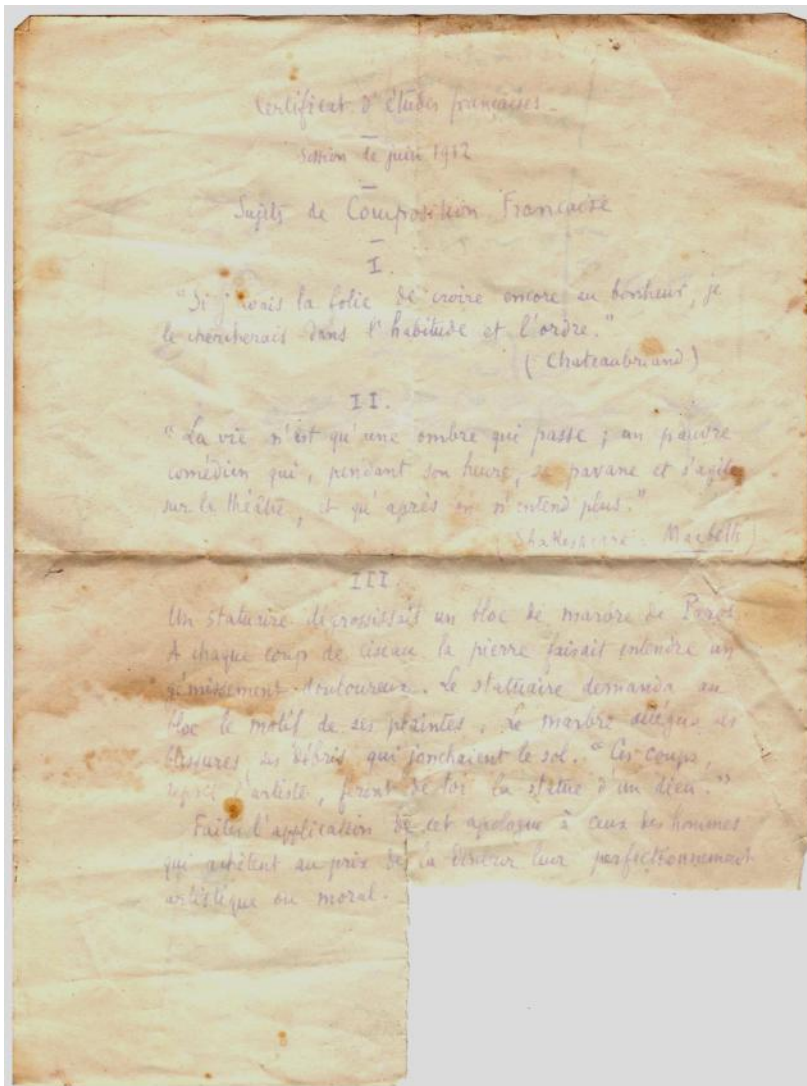 Certificat d'études françaises.
Session de juin 1912
Sujets de Composition Française
I.
"Si j'avais la folie de croire encore au bonheur, je
le chercherais dans l'habitude et l'ordre."
(Chateaubriand)
II.
"La vie n'est qu'une ombre qui passe ; un pauvre
comédien qui, pendant son heure, se pavane et s'agite
sur le théâtre, et qu'après on n'entend plus."
(Shakespeare : Macbeth)
III
Un statuaire dégrossissait un bloc de marbre de Paros.
A chaque coup de ciseau la pierre faisait entendre un
gémissement douloureux. Le statuaire demanda au
bloc le motif de ses plaintes. Le marbre allégua ses
blessures, ses débris qui jonchaient le sol. "Ces coups,
reprit l'artiste, feront de toi la statue d'un dieu."
Faites l'application de cet apologue à ceux des hommes
qui achètent au prix de la douleur leur perfectionnement
artistique ou moral.